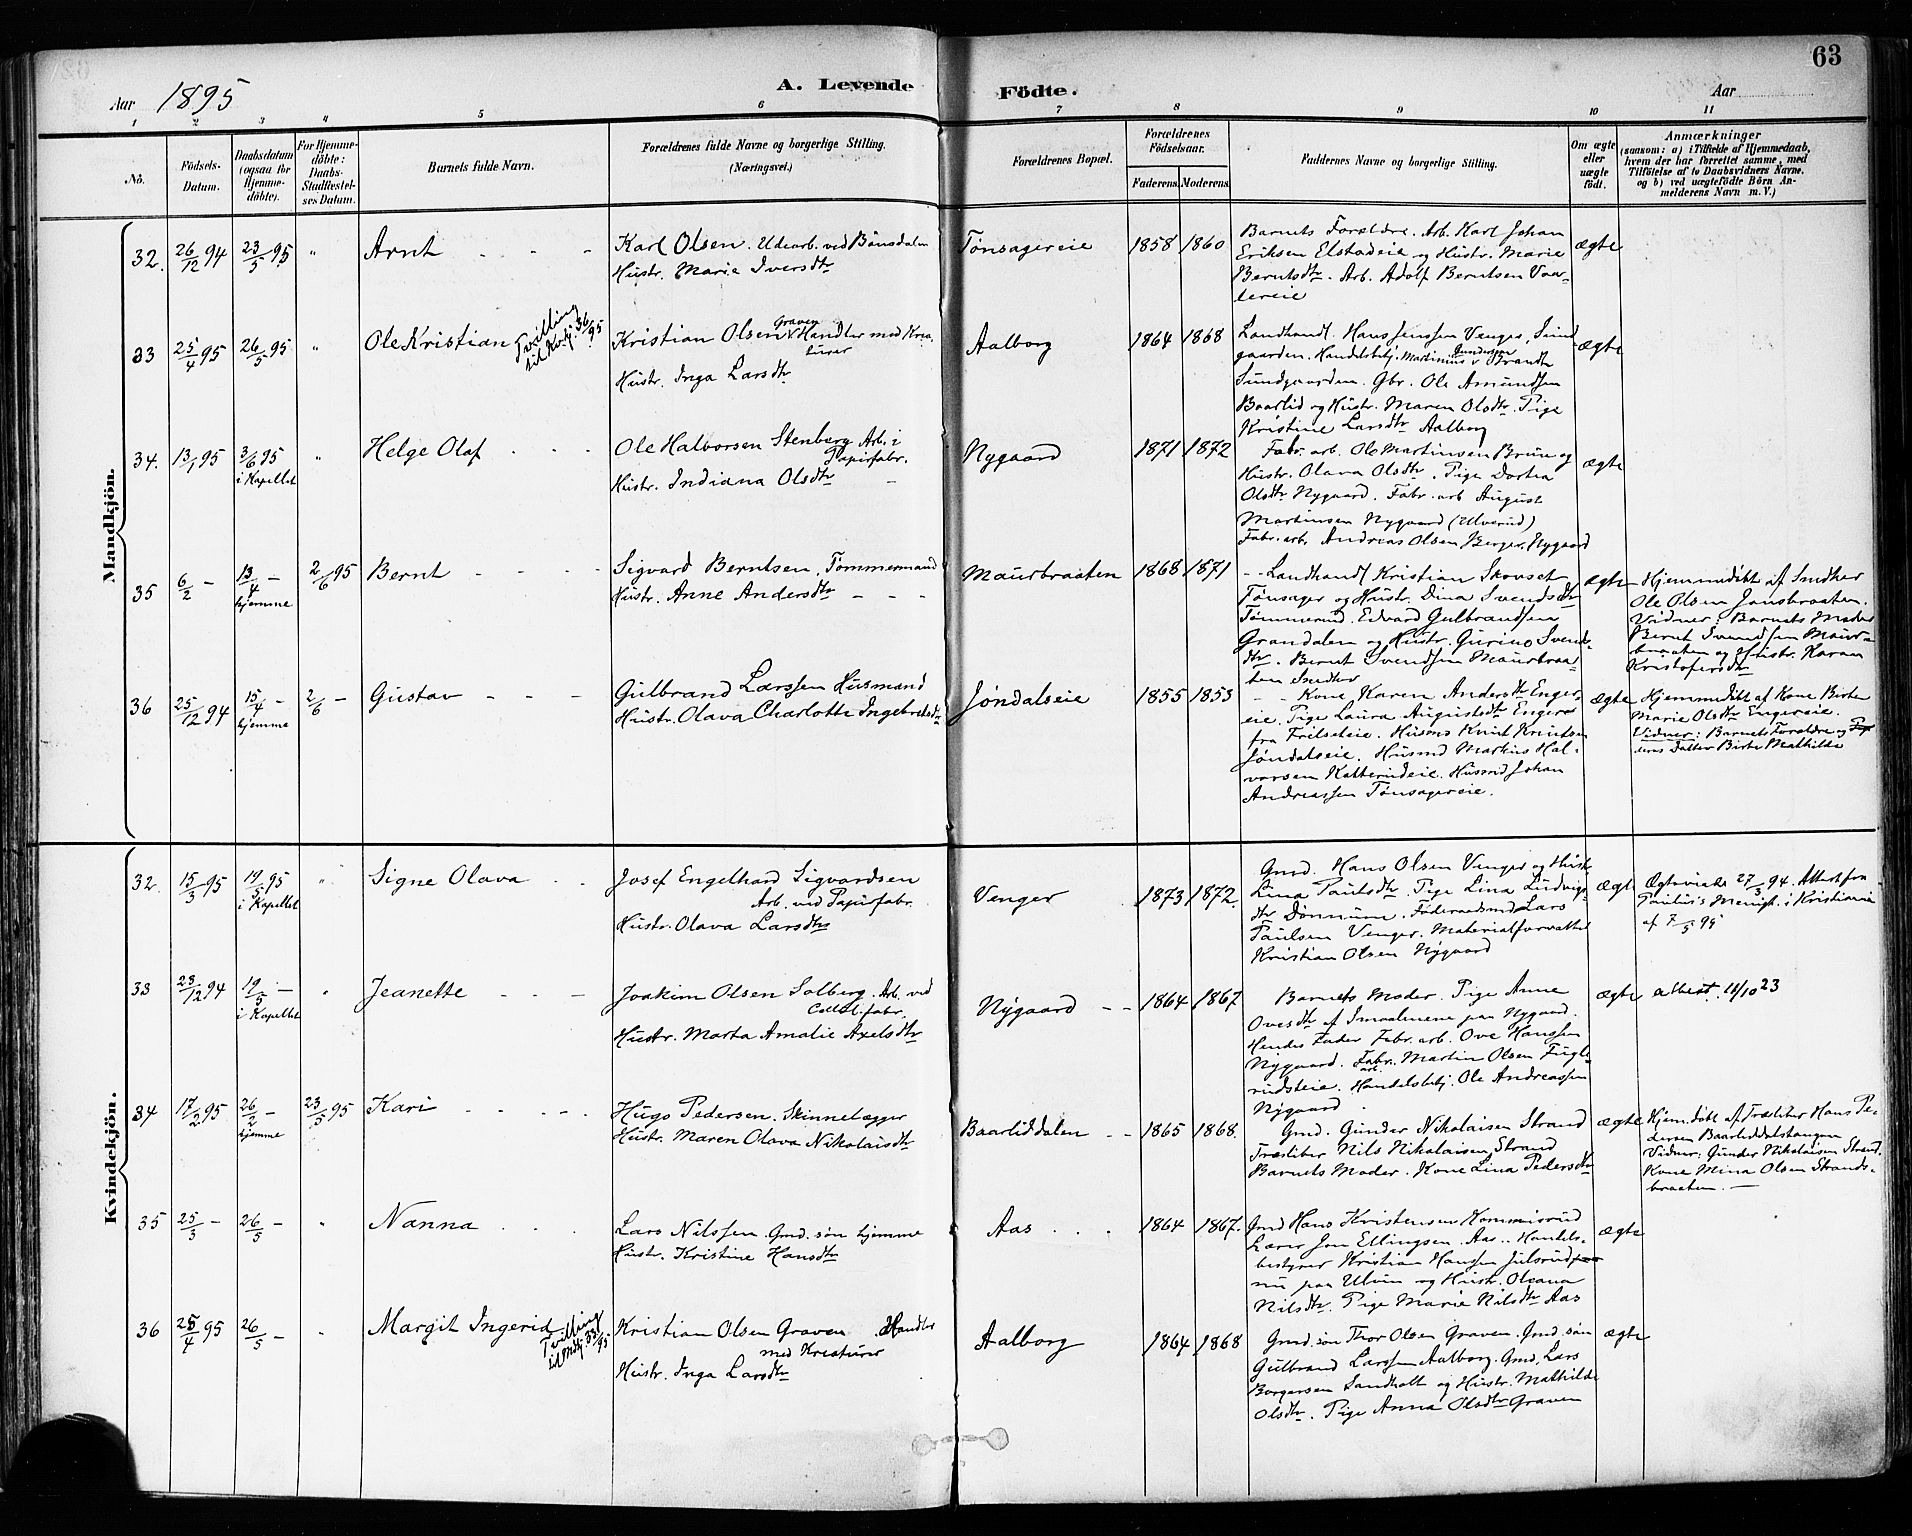 63
Aar 1895
A. Levende Födte.
Aar
1 2 3 4 5 6 7 8 9 10 11
No.
Födsels-Datum.
Daabsdatum (ogsaa for Hjemme-döbte).
For Hjemme-döbte: Daabs-Stadfæstel-ses Datum.
Barnets fulde Navn.
Forældrenes fulde Navne og borgerlige Stilling.
(Næringsvei.)
Forældrenes Bopæl.
Forældrenes Födselsaar.
Faderens. Moderens.
Faddernes Navne og borgerlige Stilling.
Om ægte eller uægte födt.
Anmærkninger
(saasom: a) i Tilfælde af Hjemmedaab,
hvem der har forrettet samme, med
Tilföielse af to Daabsvidners Navne,
og b) ved uægtefödte Börn An-
melderens Navn m. V.)
Mandkjön.
32. 26/12 94 23/5 95 " Arnt
Karl Olsen. Udearb. ved Bønsdalen
Hustr. Marie Iversdtr
Tønsagereie 1858 1860
Barnets Forældre. Arb. Karl Johan
Eriksen Elstadeie og Hustr. Marie
Berntsdtr. Arb. Adolf Berntsen Vaa-
lereie
ægte
33 25/4 95 26/5 95 " Ole Kristian
Tvilling til Kvkj. 36/95
Kristian Olsen Graven Handler med Krea-
turer
Hustr. Inga Larsdtr
Aalborg 1864 1868
Landhandl. Hans Jenssen Venger, Sund-
gaarden. Handelsbetj. Martinius Gundersen Strande
Sundgaarden. Gbr. Ole Amundsen
Baarlid og Hustr. Maren Olsdtr. Pige
Kristine Larsdtr Aalborg
ægte
34. 13/1 95 3/6 95 i Kapellet " Helge Olaf
Ole Halvorsen Stenberg Arb. i
Papirfabr.
Hustr. Indiana Olsdtr
Nygaard 1871 1872
Fabr. arb. Ole Martinsen Brun og
Hustr. Olava Olsdtr. Pige Dortea
Olsdtr Nygaard. Fabr. arb August
Martinsen Nygaard (Ulverud)
Fabr. arb. Andreas Olsen Berger, Nygaard
ægte
35 6/2 - 13/4 - hjemme 2/6 95 Bernt
Sigvard Berntsen, Tømmermand
Hustr. Anne Andersdtr
Maurbraaten 1868 1871
Landhandl Kristian Skovset
Tønsager og Hustr. Dina Svendsdtr
Tømmerud. Edvard Gulbrandsen
Grandalen og Hustr. Gurine Svends-
dtr. Bernt Svendsen Maurbraa-
ten Snedker
ægte
Hjemmedøbt af Snedker
Ole Olsen Jonsbraaten.
Vidner: Barnets Moder
Bernt Svendsen Maur-
braaten og Hustr. Karen
Kristofersdtr
36 25/12 94 15/4 - hjemme 2/6 - Gustav
Gulbrand Larssen Husmand
Hustr. Olava Charlotte Ingebretsdtr
Jøndalseie 1855 1853
Kone Karen Andersdtr Enger-
eie. Pige Laura Augustsdtr Engers
fra Frilseteie. Husmd Knut Knutsen
Jøndalseie. Husmd Markus Hal-
vorsen Katterudeie. Husmd Johan
Andreassen Tønsagereie.
ægte
Hjemmedøbt af Kone Birte
Marie Olsdtr Engereie.
Vidner: Barnets Forældre og
dens Datter Birte Mathilde
Kvindekjön.
32. 15/3 95 19/5 95 i Kapellet " Signe Olava
Josef Engelhard Sigvardsen
Arb. ved Papirfabr.
Hustr. Olava Larsdtr
Venger 1873 1872.
Gmd. Hans Olsen Venger og Hustr
Lina Paulsdtr. Pige Lina Ludvigs-
dtr Dønnum. Føderaadsmd Lars
Paulsen Venger. Materialforvalter
Kristian Olsen Nygaard
ægte
Ægteviede 27/3 94. Attest fra
Paulus's Menigh. i Kristiania
af 7/5 95
33 23/12 94 19/5 - i Kapellet " Jeanette
Joakim Olsen Solberg. Arb. ved
Cellul. fabr.
Hustr. Marta Amalie Axelsdtr
Nygaard 1864 1867
Barnets Moder. Pige Anne
Ovesdtr af Smaalenene paa Nygaard.
Hendes Fader Fabr. arb. Ove Hanssen
Nygaard. Fabr. arb. Martin Olsen Fugle-
rudsteie. Handelsbetj. Ole Andreassen
Nygaard
ægte
attest. 11/10 23
34 17/2 95 26/2 - hjemme 23/5 95 Kari
Hugo Pedersen. Skinnelægger
Hustr. Maren Olava Nikolaisdtr
Baarliddalen 1865 1868.
Gmd. Gunder Nikolaisen Strand
Træsliber Nils Nikolaisen Strand
Barnets Moder. Kone Lina Pedersdtr
ægte
Hjem. døbt af Træsliber Hans Pe-
dersen Baarliddalstangen
Vidner: Gunder Nikolaisen Strand.
Kone Mina Olsen Strands-
braaten.
35 25/3 - 26/5 - " Nanna
Lars Nilssen. Gmd. søn hjemme
Hustr. Kristine Hansdtr
Aas 1864 1867.
Gmd Hans Kristensen Kommisrud
Lærer Jon Ellingsen Aas. Handels-
bestyrer Kristian Hansen Julsrud
nu paa Ulvin og Hustr. Oleana
Nilsdtr. Pige Marie Nilsdtr Aas
ægte
36 25/4 95 26/5 - " Margit Ingerid
Tvilling til Mdkj. 33/95
Kristian Olsen Graven Handler
med Kreaturer
Hustr. Inga Larsdtr
Aalborg 1864 1868
Gmd. søn Thor Olsen Graven. Gmd. søn
Gulbrand Larssen Aalborg. Gmd. Lars
Borgersen Sandholt og Hustr. Mathilde
Olsdtr. Pige Anna Olsdtr Graven
ægte